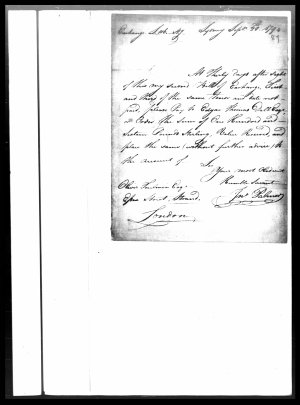 Exchange Sydney Sept.
At Thirty days after sight
of this my second Bill of Exchange, First
and Third of the same Tenor and date not
paid, please Pay to Edgar Thomas Esq.
or Order the Sum of One Hundred and
Sixteen Pounds Sterling, Value Received, and
place the same (without further advice) to
the account of Sir
Your most Obedient
Humble Servant
Jno. Palmer
Esq.
Essex Street Strand.
London